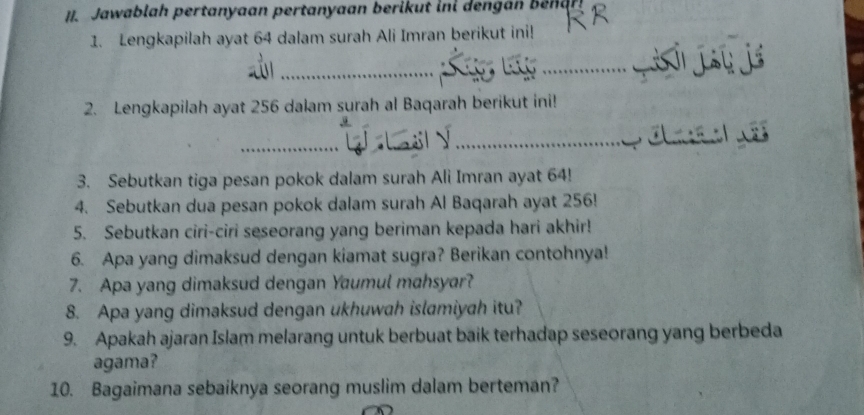 II. Jawablah pertanyaan pertanyaan berikut ini dengan benar!
RR
1. Lengkapilah ayat 64 dalam surah Ali Imran berikut ini!
قُلْ يٰٓاَهْلَ الْكِتٰبِ ................ بَيْنَنَا وَبَيْنَكُمْ ............................ اللّٰهَ
2. Lengkapilah ayat 256 dalam surah al Baqarah berikut ini!
فَقَدِ اسْتَمْسَكَ بِ .............................. لَا انْفِصَامَ لَهَا ..................
3. Sebutkan tiga pesan pokok dalam surah Ali Imran ayat 64!
4. Sebutkan dua pesan pokok dalam surah Al Baqarah ayat 256!
5. Sebutkan ciri-ciri seseorang yang beriman kepada hari akhir!
6. Apa yang dimaksud dengan kiamat sugra? Berikan contohnya!
7. Apa yang dimaksud dengan Yaumul mahsyar?
8. Apa yang dimaksud dengan ukhuwah islamiyah itu?
9. Apakah ajaran Islam melarang untuk berbuat baik terhadap seseorang yang berbeda
agama?
10. Bagaimana sebaiknya seorang muslim dalam berteman?